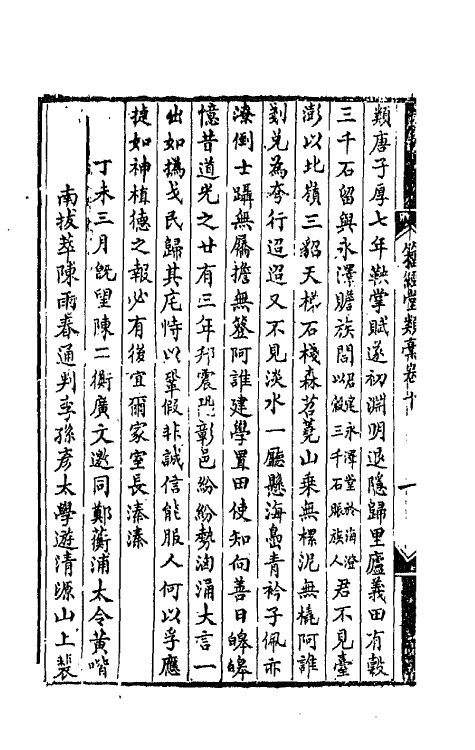 類唐子厚七年鞅掌賦遂初淵明退隱歸里廬義田有穀
三千石留與永澤贍族閭君定永澤堂於海澄以穀三千石賑族人君不見臺
澎以北嶺三貂天梯石棧森苕蕘山乘無樏泥無橇阿誰
兌為夸行迢迢又不見淡水一廳懸海島青衿子佩亦
潦倒士躡無屩擔無簦阿誰建學置田使知向善日皞皞
憶昔道光之廿有三年邦震恐彰邑紛紛勢洶涌大言一
出如撝戈民歸其庇恃以鞏假非誠信能服人何以孚應
捷如神植德之報必有後宜爾家室長溱溱
丁未三月旣望陳二衡廣文邀同鄭蘅浦太令黃喈
南拔萃陳雨春通判李孫彥太學遊清源山上裴
籀經堂類稾卷十
一